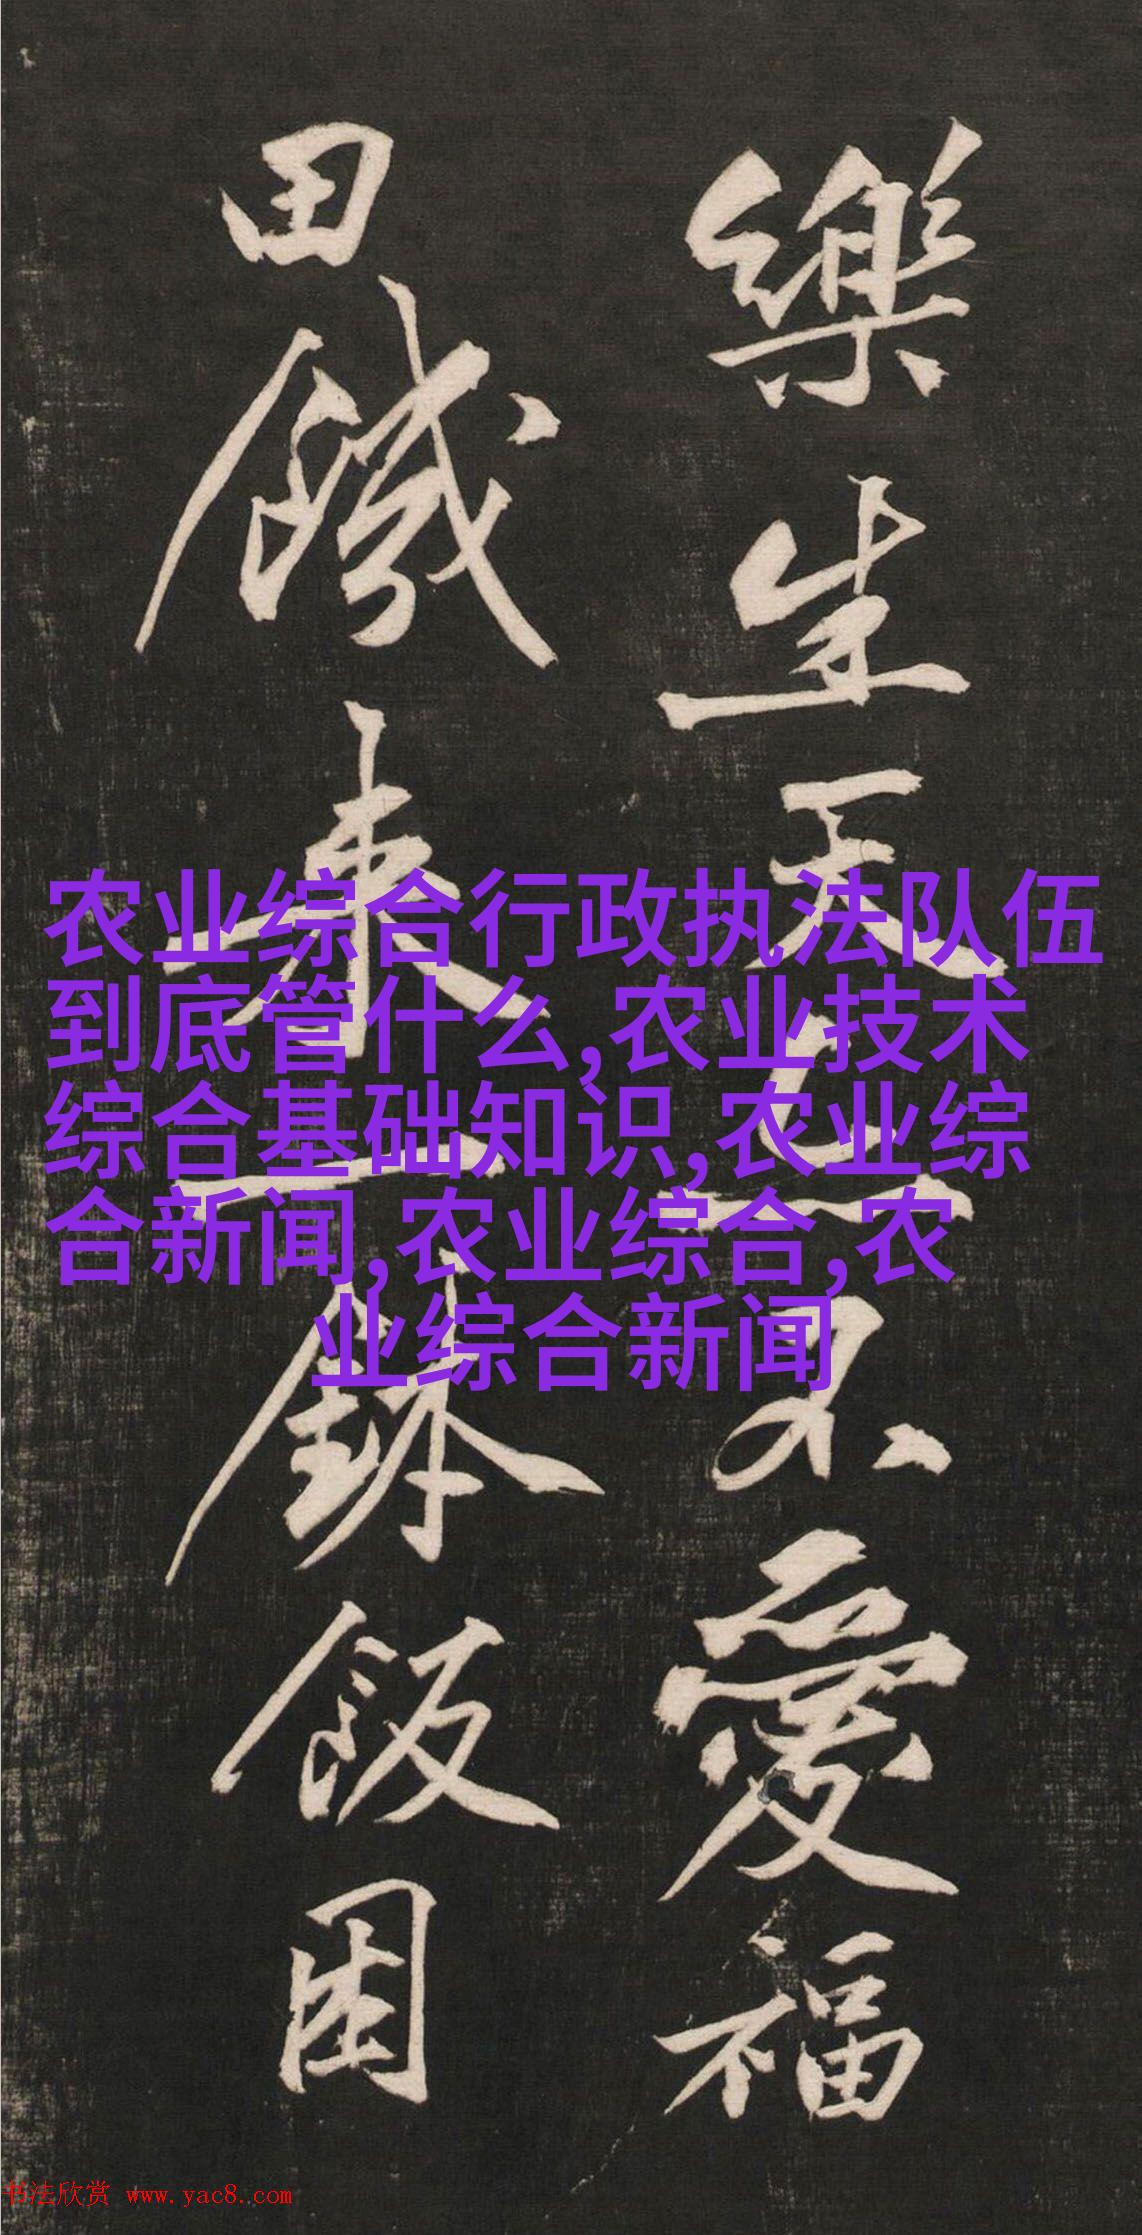 樂生天不愛福
田饑來一鉢飯困
农业综合行政执法队伍
到底管什么,农业技术
综合基础知识,农业综
合新闻,农业综合,农
业综合新闻
书法欣赏 www.yac8.com